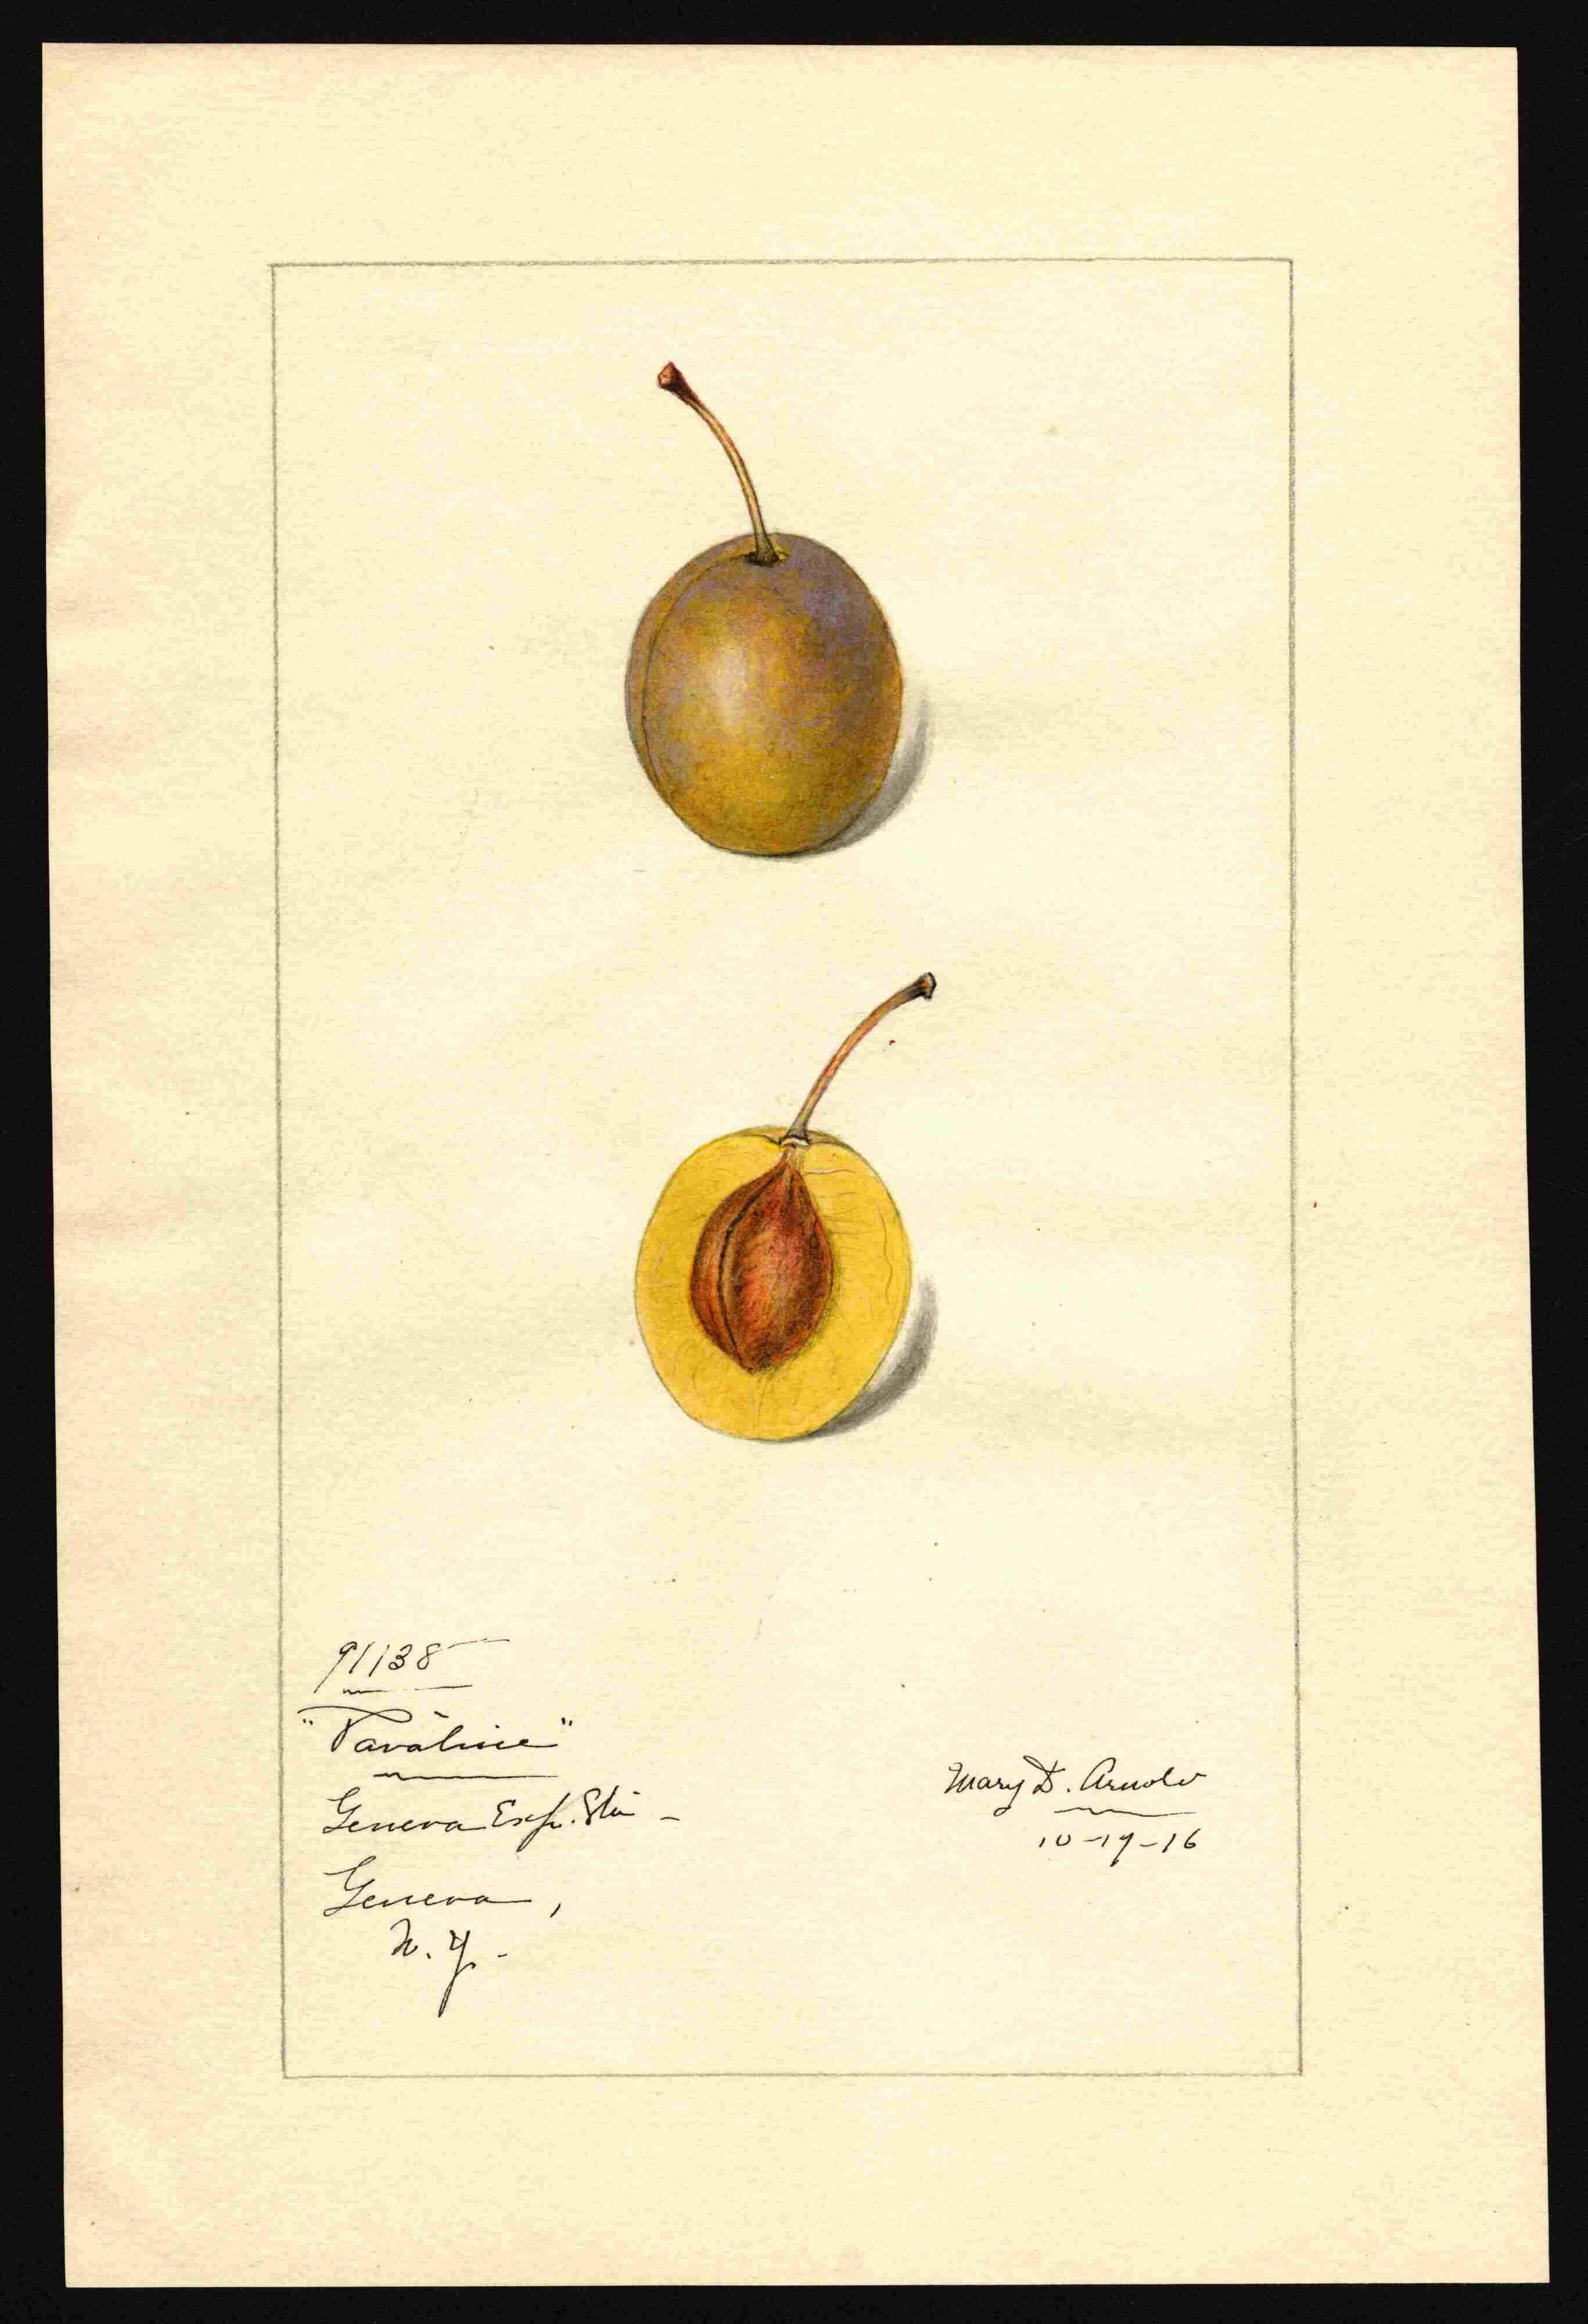 91138
Geneva Exp. Sta -
Geneva,
N. Y. -
Mary D. Arnold
10-19-16